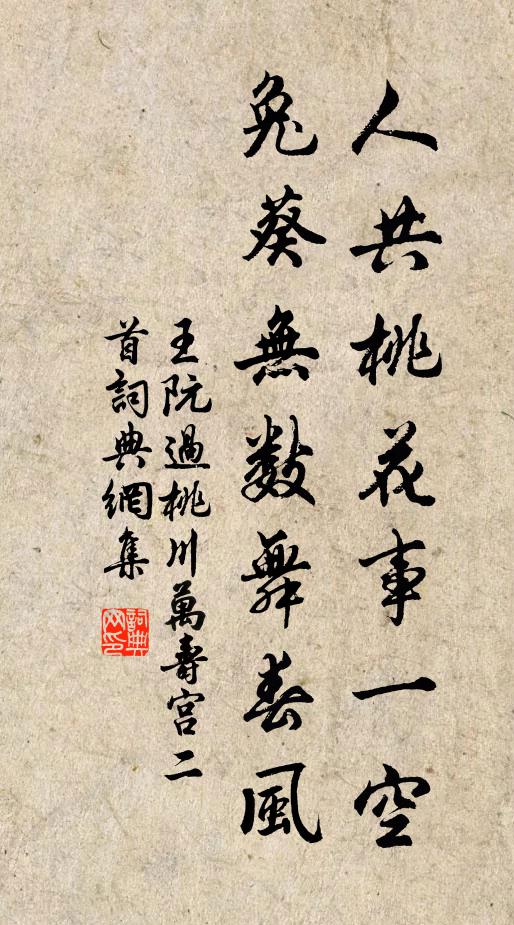 人共桃花事一空
兔葵無數舞春風
王阮過桃川萬壽宮二
首詞典網集
詞典
网印